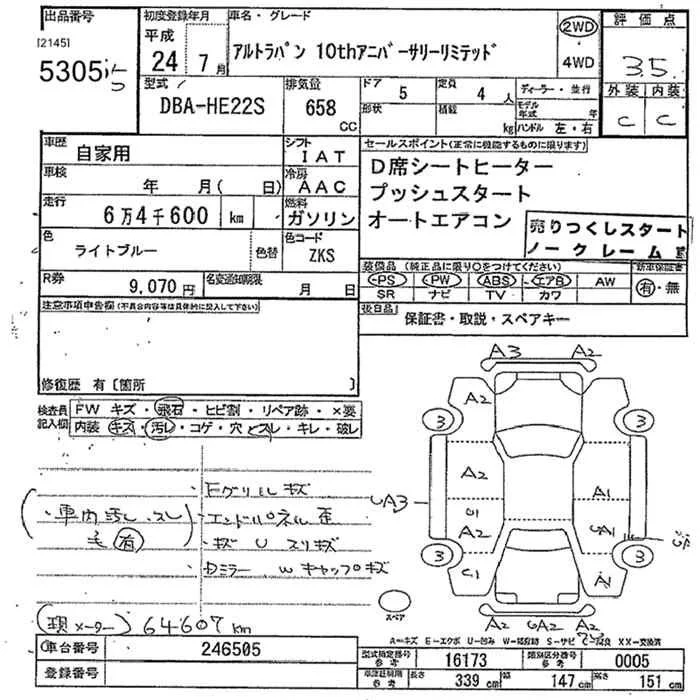 出品番号 初度登録年月 車名・グレード 評価点
[2145]
5305
平成 24年 7月 アルトラパン 10thアニバーサリーリミテッド 2WD ・ 4WD 3.5
型式 排気量 ドア 5 定員 4人 ディーラー・並行 外装 内装
DBA-HE22S 658 CC 形状 積載 kg モデル年式 年 ハンドル 左・右 C C
車歴 自家用 シフト IAT セールスポイント(正常に機能するものに限ります)
車検 年 月( 日) 冷房 AAC D席シートヒーター
プッシュスタート
走行 6万4千600 km 燃料 ガソリン オートエアコン
売りつくしスタート
ノークレーム
色 ライトブルー 色替 色コード ZKS
R券 9,070円 名変通知期限 月 日
装備品(純正品に限り○をつけてください) 新車保証書
PS PW ABS エアB AW 有・無
SR ナビ TV カワ
注意事項申告欄(不具合内容等は具体的に記入して下さい)
後日品 保証書・取説・スペアキー
修復歴 有〔箇所 〕
検査員記入欄 FW キズ・飛石・ヒビ割・リペア跡・×要
内装 キズ・汚レ・コゲ・穴・スレ・キレ・破レ
A3 A2
A2
3 3
A2
UA3 A1
A2 UA1
3 3
C1 A1
A2 UA2 A2
・Fグリルキズ
・車内汚レ、スレ ・エンドパネル歪
毛有 ・キズ U スリキズ
・Dミラー、Wキャップキズ
スペア
(現メーター) 64607km
A=キズ E=エクボ U=凹み W=補修跡 S=サビ C=腐食 XX=交換済
車台番号 246505 型式指定番号 参考 16173 類別区分番号 参考 0005
登録番号 車庫証明用 参考 長さ 339 cm 幅 147 cm 高さ 151 cm